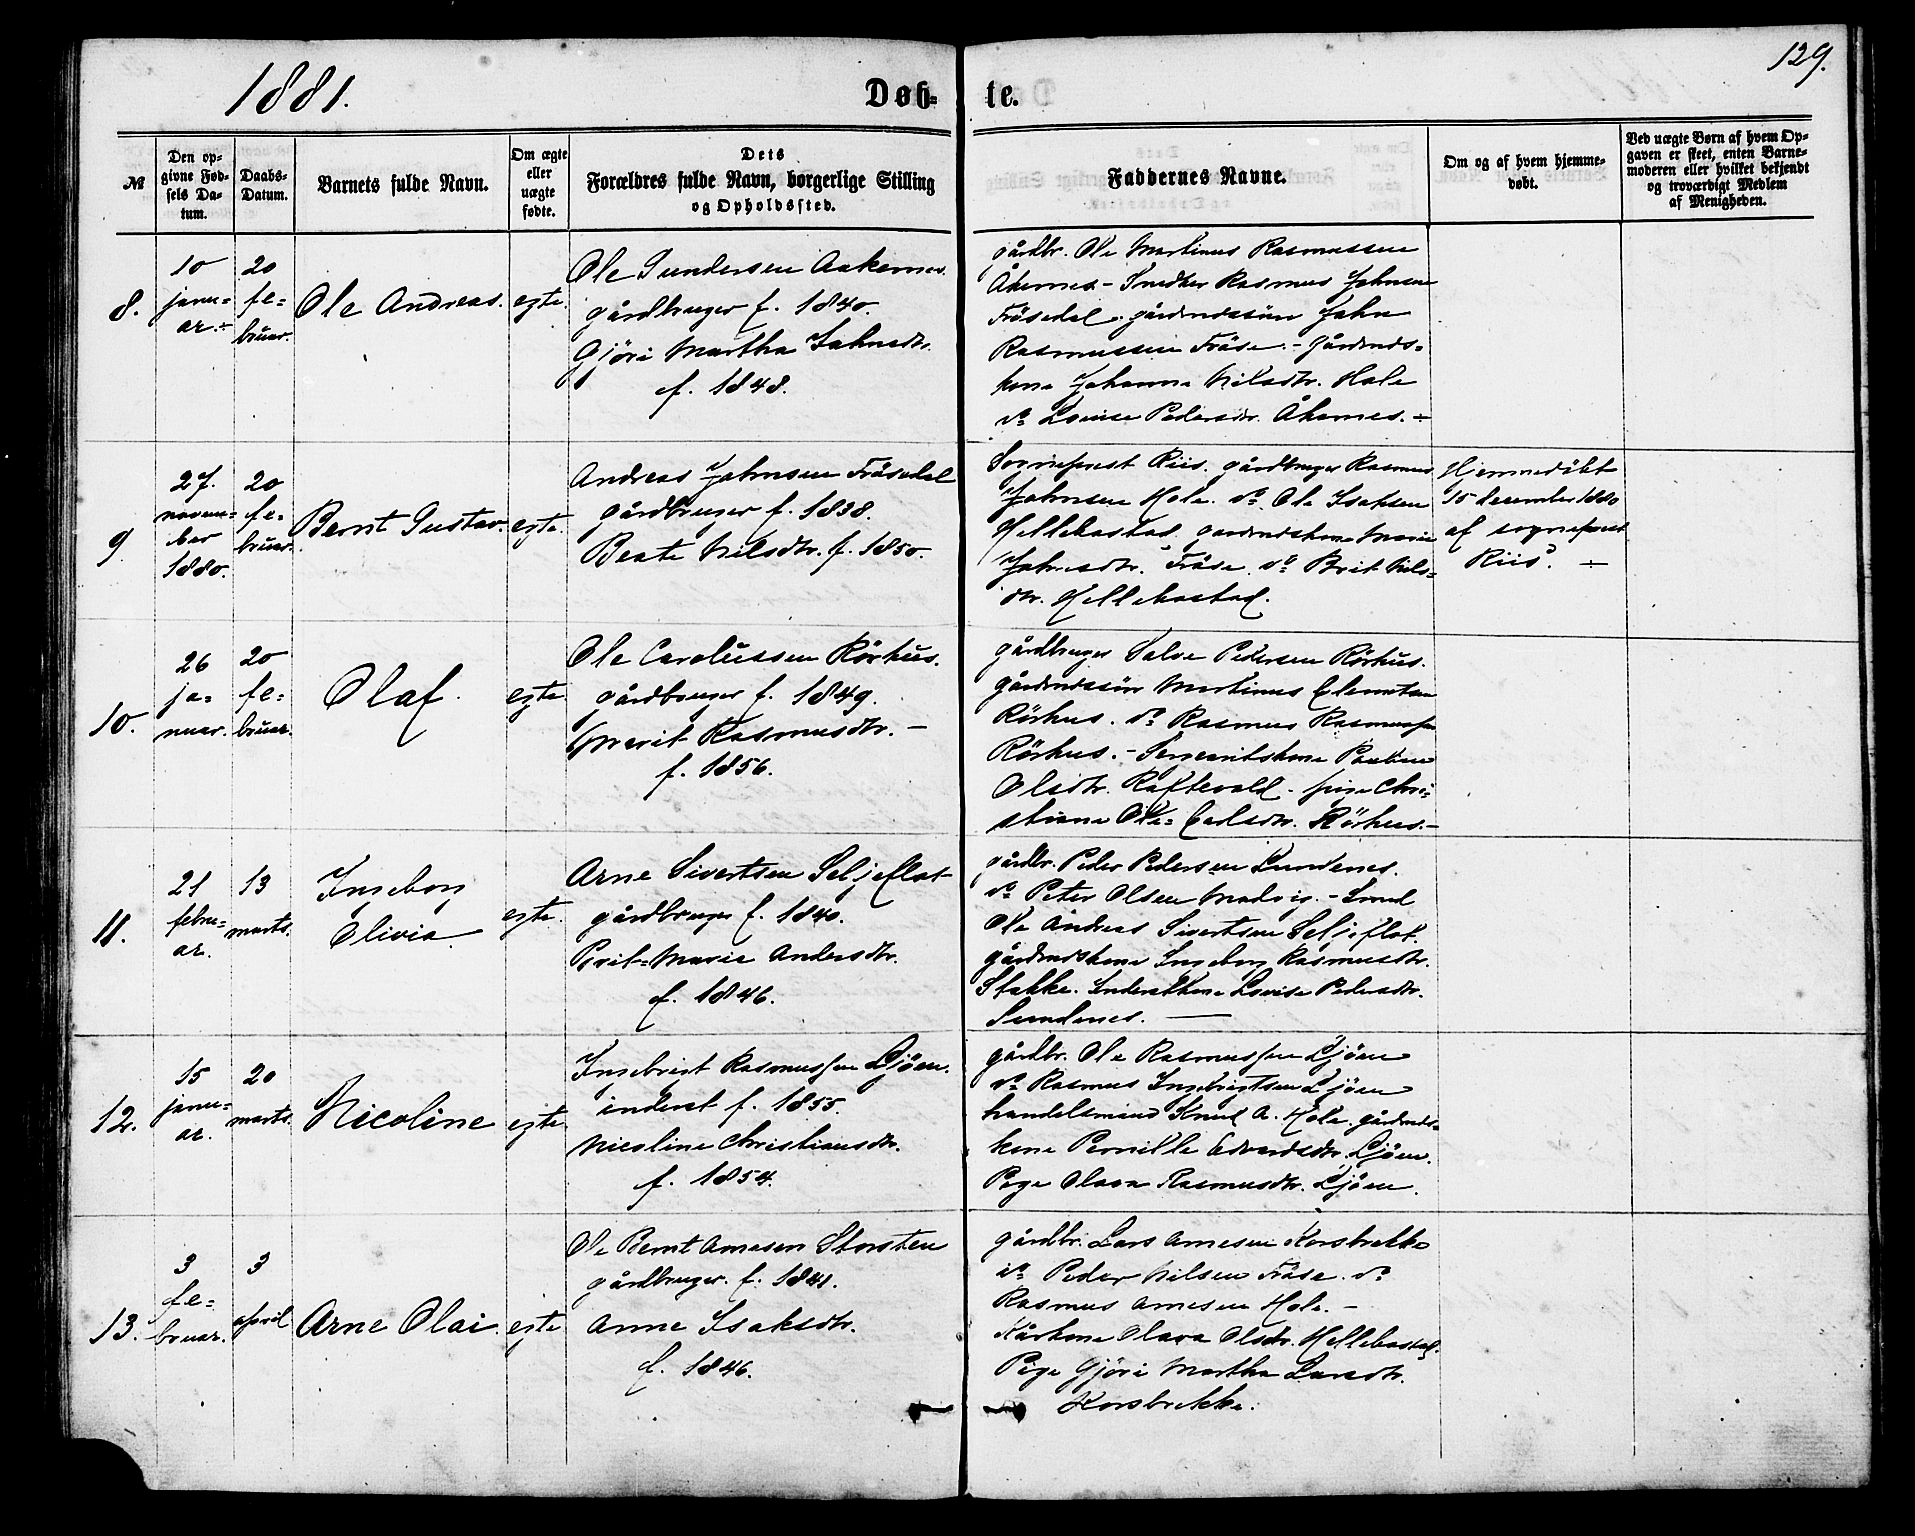 1881.
Døb-
te.
129.
№
Den op-
givne Fød-
sels Da-
tum.
Daabs-
Datum.
Barnets fulde Navn.
Om ægte
eller
uægte
fødte.
Dets
Forældres fulde Navn, borgerlige Stilling
og Opholdssted.
Faddernes Navne.
Om og af hvem hjemme-
døbt.
Ved uægte Børn af hvem Op-
gaven er skeet, enten Barne-
moderen eller hvilket bekjendt
og troværdigt Medlem
af Menigheden.
8.
10
janu-
ar.
20
fe-
bruar.
Ole Andreas.
egte.
Ole Gundersen Aakernes.
gårdbruger f. 1840.
Gjöri Martha Jahnsdtr.
f. 1848.
gårdbr. Ole Martinus Rasmussen
Åkernes - Snedker Rasmus Jahnsen
Fråsedal. gårdmdssön Jahn
Rasmussen Fråse. - gårdmds-
kone Johanne Nilsdtr. Hole
do Lovise Pedersdtr. Åkernes. -
9
27.
novem-
ber
1880.
20
fe-
bruar.
Bernt Gustav.
egte.
Andreas Jahnsen Fråsedal
gårdbruger f. 1838.
Beate Nilsdtr. f. 1850.
Sogneprest Riis. gårdbruger Rasmus
Jahnsen Hole. do Ole Isaksen
Hellebostad. gårdmdskone Marie
Jahnsdtr. Fråse. do Brit Nils-
dtr. Hellebostad.
Hjemmedöbt
15 december 1880
af sogneprest
Riis. -
10.
26
ja-
nuar.
20
fe-
bruar.
Olaf.
egte.
Ole Carolussen Rörhus.
gårdbruger f. 1849.
Marit Rasmusdtr. -
f. 1856.
gårdbruger Salve Pedersen Rörhus.
gårdmdssön Martinus Clemetsen
Rörhus. do Rasmus Rasmussen
Rörhus. - Sergeantskone Pauline
Olsdtr. Raftevold - pige Chri-
stiane Ole- Carlsdtr. Rörhus. -
11.
21
febru-
ar.
13
marts.
Ingeborg
Olivia.
egte.
Arne Sivertsen Seljeflot
gårdbruger f. 1840.
Brit-Marie Andersdtr.
f. 1846.
gårdbr. Peder Pedersen Lundenes.
do Peter Olsen Madvig. - Smed
Ole Andreas Sivertsen Seljeflot.
gårdmdskone Ingeborg Rasmusdtr.
Stakke. Inderstkone Lovise Pedersdtr.
Lundenes. —
12.
15
janu-
ar.
20
marts.
Nicoline
egte.
Ingebrigt Rasmussen Ljöen.
inderst f. 1855.
Nicoline Christiansdtr.
f. 1854.
gårdbr. Ole Rasmussen Ljöen
do Rasmus Ingebrigtsen Ljöen
handelsmand Knud A. Hole. gårdmds-
kone Pernille Edvardsdtr. Ljöen.
Pige Olava Rasmusdtr. Ljöen.
13.
3
fe-
bruar.
3
april
Arne Olai.
egte
Ole Bernt Arnesen Storsten
gårdbruger. f. 1841.
Anne Isaksdtr.
f. 1846.
gårdbr. Lars Arnesen Korsbrekke
do Peder Nilsen Fråse. do
Rasmus Arnesen Hole. -
Kårkone Olava Olsdtr. Hellebostad.
Pige Gjöri Martha Larsdtr.
Korsbrekke.